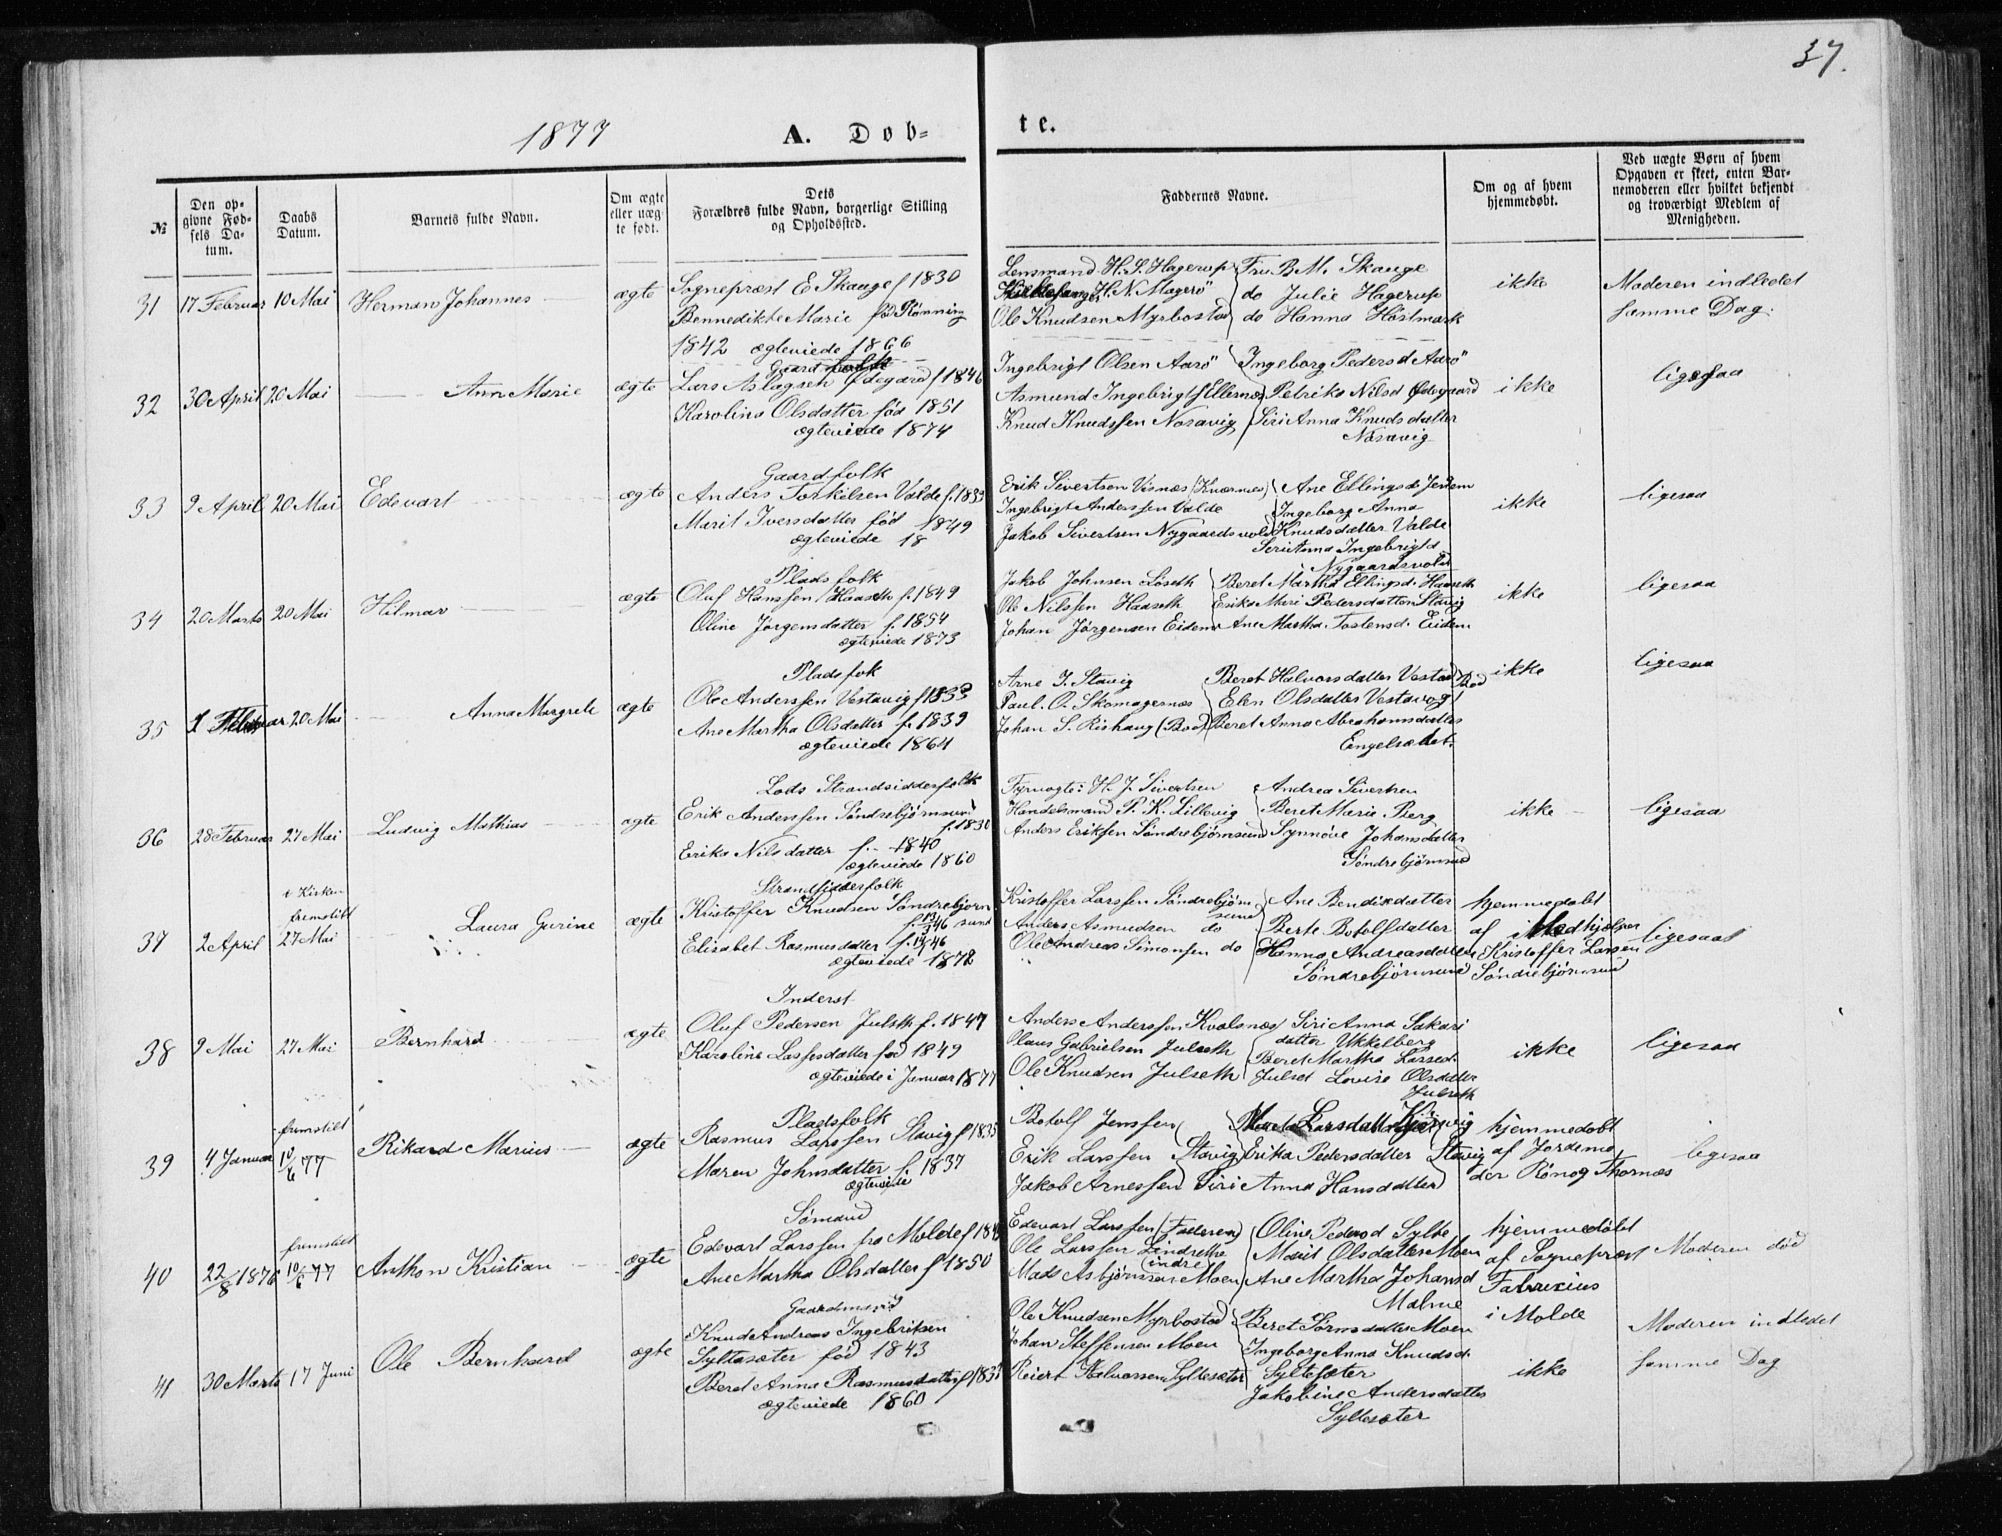 37.
1877 A. Dob= te.
№
Den opgivne Fødsels Datum.
Daabs Datum.
Barnets fulde Navn.
Om ægte eller uægte født.
Dets Forældres fulde Navn, borgerlige Stilling og Opholdssted.
Faddernes Navne.
Om og af hvem hjemmedøbt.
Ved uægte Børn af hvem Opgaven er skeet, enten Barnemoderen eller hvilket bekjendt og troværdigt Medlem af Menigheden.
31 17 Februar 10 Mai Herman Johannes ægte
Sognepræst E Skauge f 1830
Bennedikte Marie fød Rønning
1842 ægteviede 1866
Lensmand H. S. Hagerup Fru B M. Skauge
H. N. Magerö do Julie Hagerup
Ole Knudsen Myrbostad do Hanna Höstmark
ikke
Moderen indledet
samme Dag.
32 30 April 20 Mai Ann Marie ægte
Gaard
Lars Aslagsen Ødegaard f 1846
Karolina Olsdatter fød 1851
ægteviede 1874
Ingebrigt Olsen Aarö Ingeborg Pedersd Aarö
Asmund Ingebrigts Ellenes Petrike Nilsd Ødegaard
Knud Knudssen Nosavig Siri Anna Knudsdatter
Nosavig
ikke
ligesaa
33 9 April 20 Mai Edevart ægte
Gaardfolk
Anders Torkelsen Valde f. 1839
Marit Iversdatter fød 1849
ægteviede 18
Erik Sivertsen Visnæs (Kværnes) Ane Ellingsd Jendem
Ingebrigt Anderssen Valde Ingeborg Anna
Jakob Sivertsen Nygaardsvold Knudsdatter Valde
Seri Anna Ingebrigtd
Nygaardsvold
ikke
ligesaa
34 20 Marts 20 Mai Hilmar ægte
Pladsfolk
Oluf Hanssen Haaseth f. 1849
Oline Jørgensdatter f. 1854
ægteviede 1873
Jakob Johnsen Löseth Beret Martha Ellingsd. Haaseth
Ole Nilssen Haaseth Erika Mari Pedersdatter Stavig
Johan Jörgensen Eidem Ane Martha Tostensd. Eidem
ikke
ligesaa
35 1 Februar 20 Mai Anna Margrete ægte
Pladsfok
Ole Anderssen Vestavig f 1833
Ane Martha Olsdatter f. 1839
ægteviede 1864
Arne J. Stavig Beret Halvorsdatter Vestad Bod
Paul. O. Skomagernæs Elen Olsdatter Vestavog
Johan S. Rishaug (Bod) Beret Anna Abrahamsdatter
Engelsætet.
ikke
ligesaa
36 28 Februar 27 Mai Ludvig Mathias ægte
Lods Strandsidderfolk
Erik Anderssen Søndrebjørnsund
f. 1830
Erika Nilsdatter f. 1840
ægteviede 1860
Fyrvogter H. J. Sivertsen Andrea Sivertsen
Handelsmand P. K. Lillevig Beret Marie Berg
Anders Eriksen Søndrebjørnsund Synnöve Johansdatter
Søndrebjørnsund
ikke
ligesaa
37 2 April i Kirken fremstilt 27 Mai Laura Gurine ægte
Strandsidderfolk
Kristoffer Knudsen Søndrebjørn
sund
Elisabet Rasmusdatter
ægteviede 1872
Kristoffer Larssen Søndrebjørn Ane Bendiksdatter
sund
Anders Asmundsen do Berte Botolfdatter
Ole Andreas Simonsen do Hanna Andreasdatter
Søndrebjørnsund
hjemmedøbt
af Medhjælper
Kristoffer Larsen
Søndrebjørnsund
ligesaa
38 9 Mai 27 Mai Bernhard ægte
Inderst
Oluf Pedersen Julseth f. 1847
Karoline Lassesdatter fød 1849
ægteviede i Januar 1877
Anders Anderssen Kvalsnæs Siri Anna Sakari
datter Ukkelberg
Olaus Gabrielsen Julseth Beret Martha Lassed.
Ole Knudsen Julseth Julset Lovise Olsdatter
Julseth
ikke
ligesaa
39 4 Januar fremstilt 10/6 77 Rikard Marius ægte
Pladsfolk
Rasmus Larssen Stavig f 1835
Maren Johnsdatter f. 1837
ægteviede
Botolf Jenssen
Erik Larssen Stavig Erika Pedersdatter Stavig
Jakob Arnessen Siri Anna Hansdatter
hjemmedøbt
af Jordemo
der Rönog Thornæs
ligesaa
40 22/8 1876 fremstilt 10/6 77 Anthon Kristian ægte
Sømand
Edevart Larssen fra Molde f
Ane Martha Olsdatter f 1850
Edevart Larssen (Faderen) Oline Pedersd Sylte
Ole Larssen Lindsethe Marit Olsdatter Moen
indre
Mads Asbjørnsen Moen Ane Martha Johansd
Malme
hjemmedøbt
af Sognepræst
Fabricius
i Molde
Moderen död
41 30 Marts 17 Juni Ole Bernhard ægte
Gaardmand
Knud Andreas Ingebrigtsen
Syltesæter fød 1843
Beret Anna Rasmusdatter f 1833
ægteviede 1860
Ole Knudsen Myrbostad Beret Sörensdatter Moen
Johan Steffensen Moen Ingeborg Anna Knudsd.
Reiert Halvorssen Syltesæter Syltesæter
Jakobine Andersdatter
Syltesæter
ikke
Moderen indledet
samme Dag